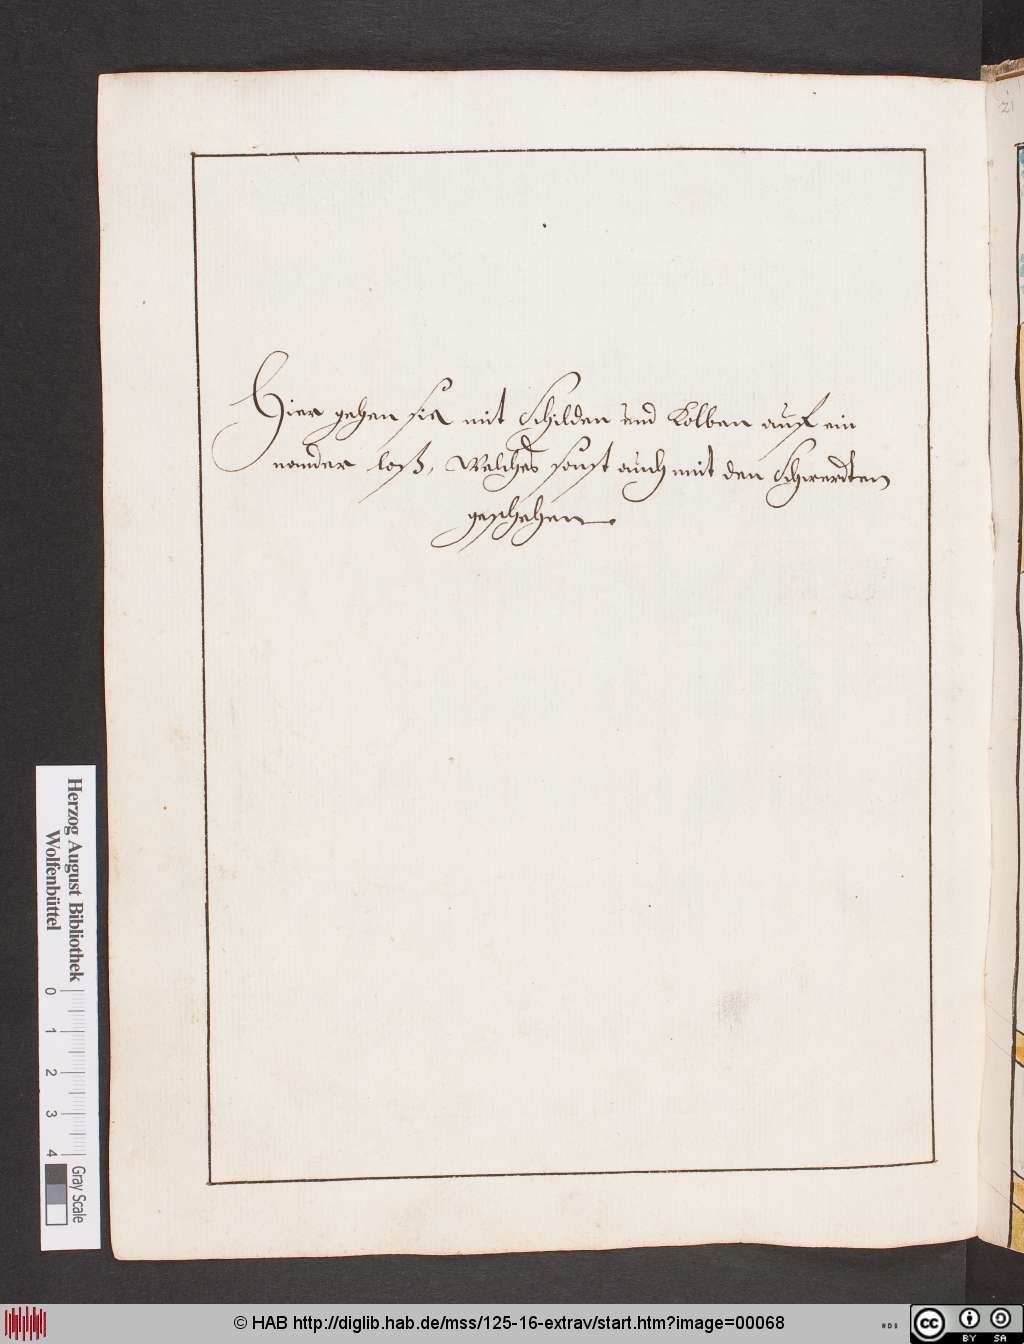 Hier gehen sie mit Schilden und Kolben auf ein
nander loß, Welches sonst auch mit den Schwerdten
geschehen.
21
Herzog August Bibliothek
Wolfenbüttel
0 1 2 3 4
Gray Scale
© HAB http://diglib.hab.de/mss/125-16-extrav/start.htm?image=00068
cc BY SA